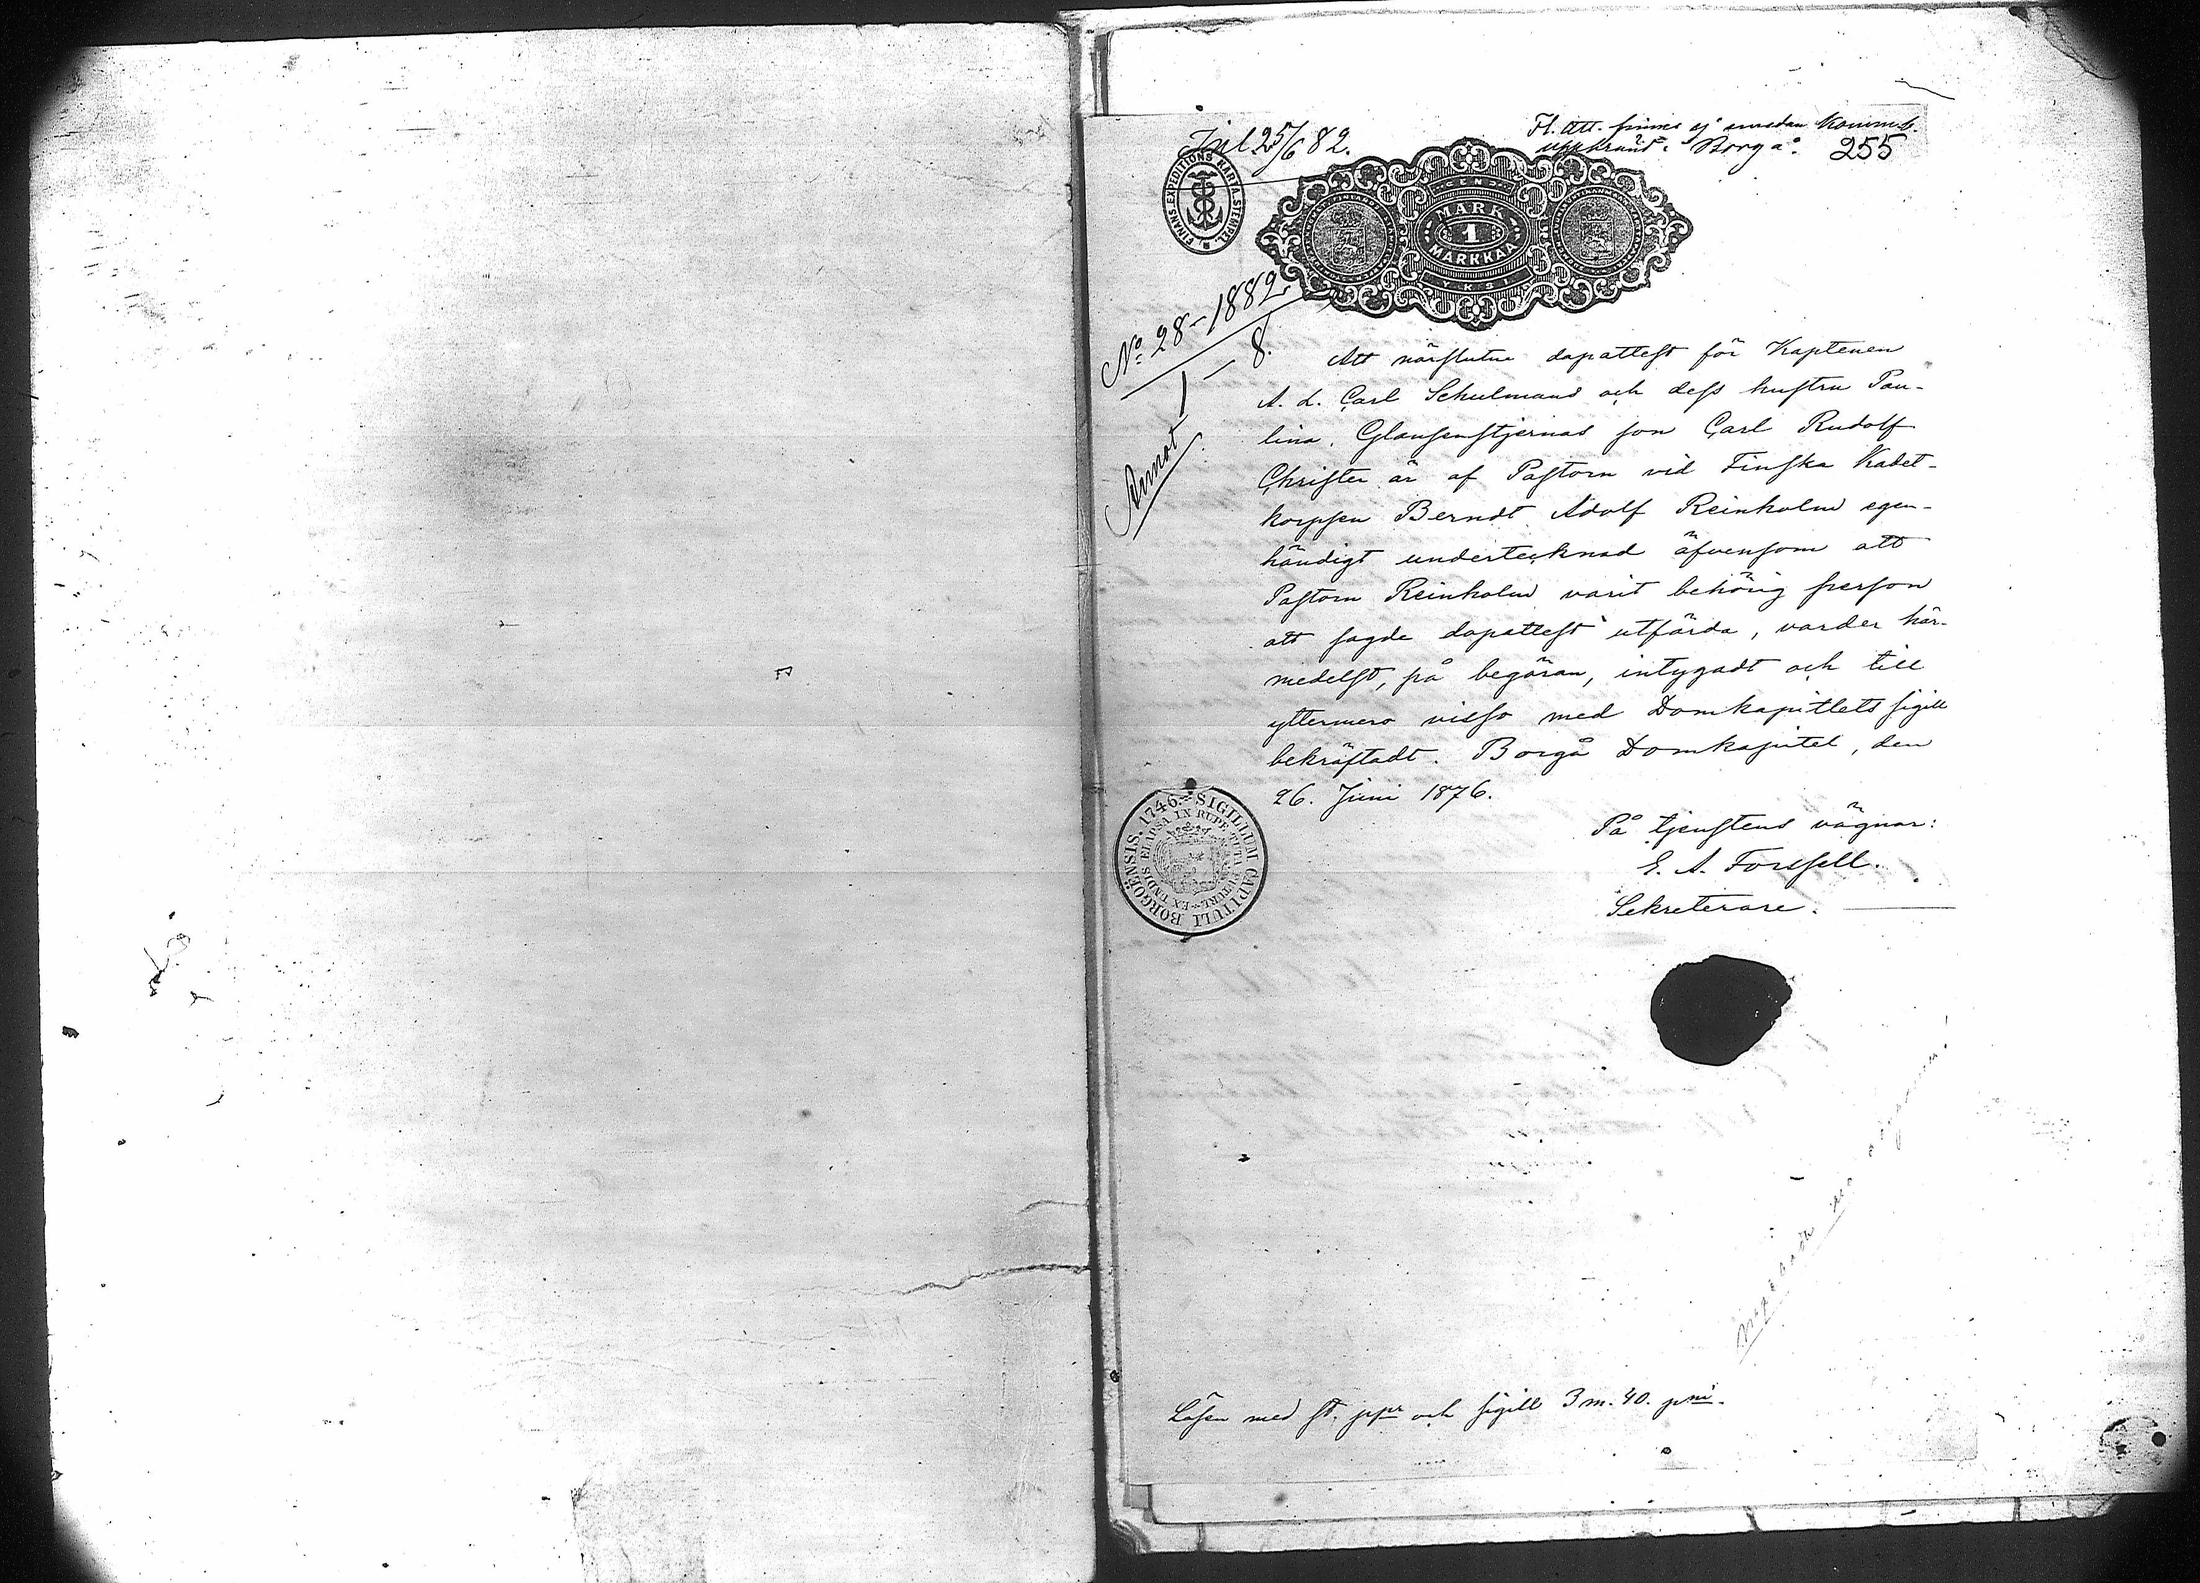 Inl 25/6 82.
Fl. att. finnes ej
Borgå.
255
S. FINANS. EXPEDITIONS KARTA. STEMPEL
EN
MARK
1
MARKKAA
YKSI
No 28–1882
1 – 8.
Att närslutne dopattest för Kaptenen
A. d. Carl Schulmans och dess hustru Pau-
lina Glansenstjernas son Carl Rudolf
Christer är af Pastorn vid Finska Kadet-
korpsen Berndt Adolf Reinholm egen-
händigt undertecknad äfvensom att
Pastorn Reinholm varit behörig person
att sagde dopattest utfärda, varder här-
medelst, på begäran, intygadt och till
yttermera visso med Domkapitlets sigill
bekräftadt. Borgå Domkapitel, den
26. Juni 1876.
På tjenstens vägnar:
E. A. Forssell.
Sekreterare.
SIGILLUM CAPITULI BORGOËNSIS. 1746.
EX UNDIS ELAPSA IN RUPE TUTA FUTURE
Lösen med st. ppr och sigill 3 m. 40. pni.